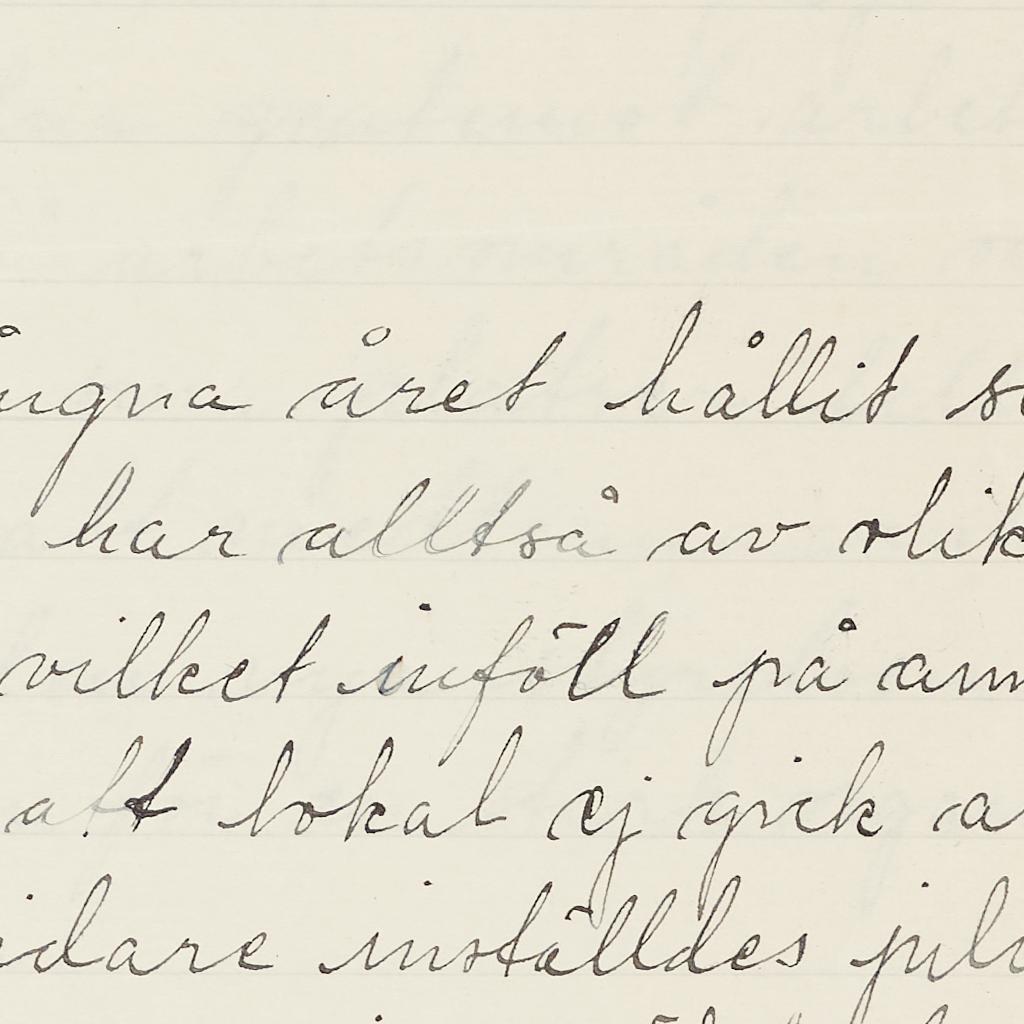 ångna året hållit s
har alltså av olik
vilket inföll på ann
att lokal ej gick a
idare inställdes jul